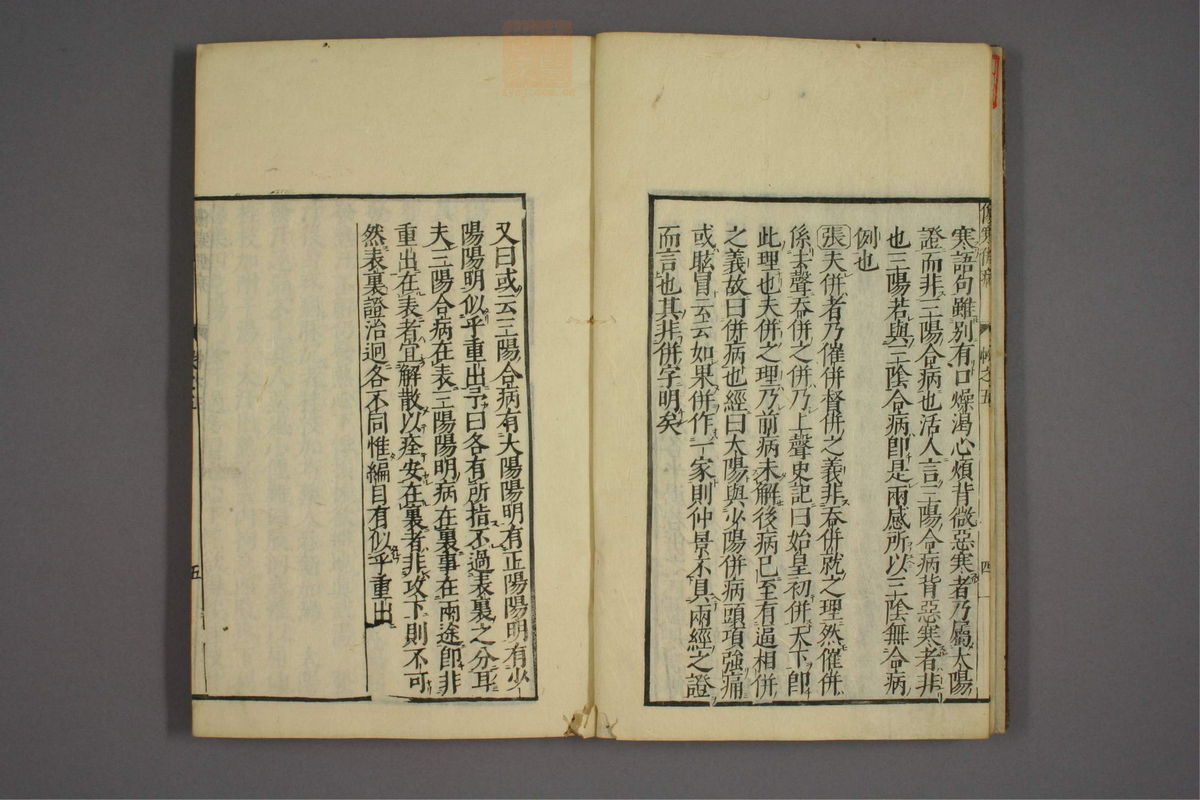 寒語句雖別有口燥渴心煩背微惡寒者乃屬太陽
證而非三陽合病也活人言三陽合病背惡寒者非
也三陽若與三陰合病即是兩感所以三陰無合病
例也
張夫併者乃催併督併之義非吞併就之理然催併
係去聲吞併之併乃上聲史記曰始皇初併天下即
此理也夫併之理乃前病未解後病已至有逼相併
之義故曰併病也經曰太陽與少陽併病頭項強痛
或眩冒云云如果併作一家則仲景不具兩經之證
而言也其非併字明矣
又曰或云三陽合病有太陽陽明有正陽陽明有少
陽陽明似乎重出予曰各有所指不過表裏之分耳
夫三陽合病在表三陽陽明病在裏事在兩途即非
重出在表者宜解散以痊安在裏者非攻下則不可
然表裏證治迥各不同惟編目有似乎重出
四
五